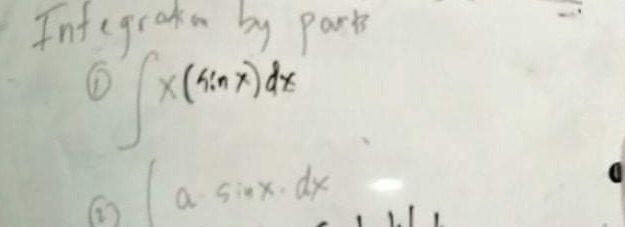 Integration by parts
① ∫x(sinx)dx
② ∫a·sinx·dx